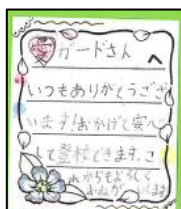 愛ガードさんへ
いつもありがとうござ
います!おかげで安心
して登校できます。こ
れからもよろしく
おねがいします